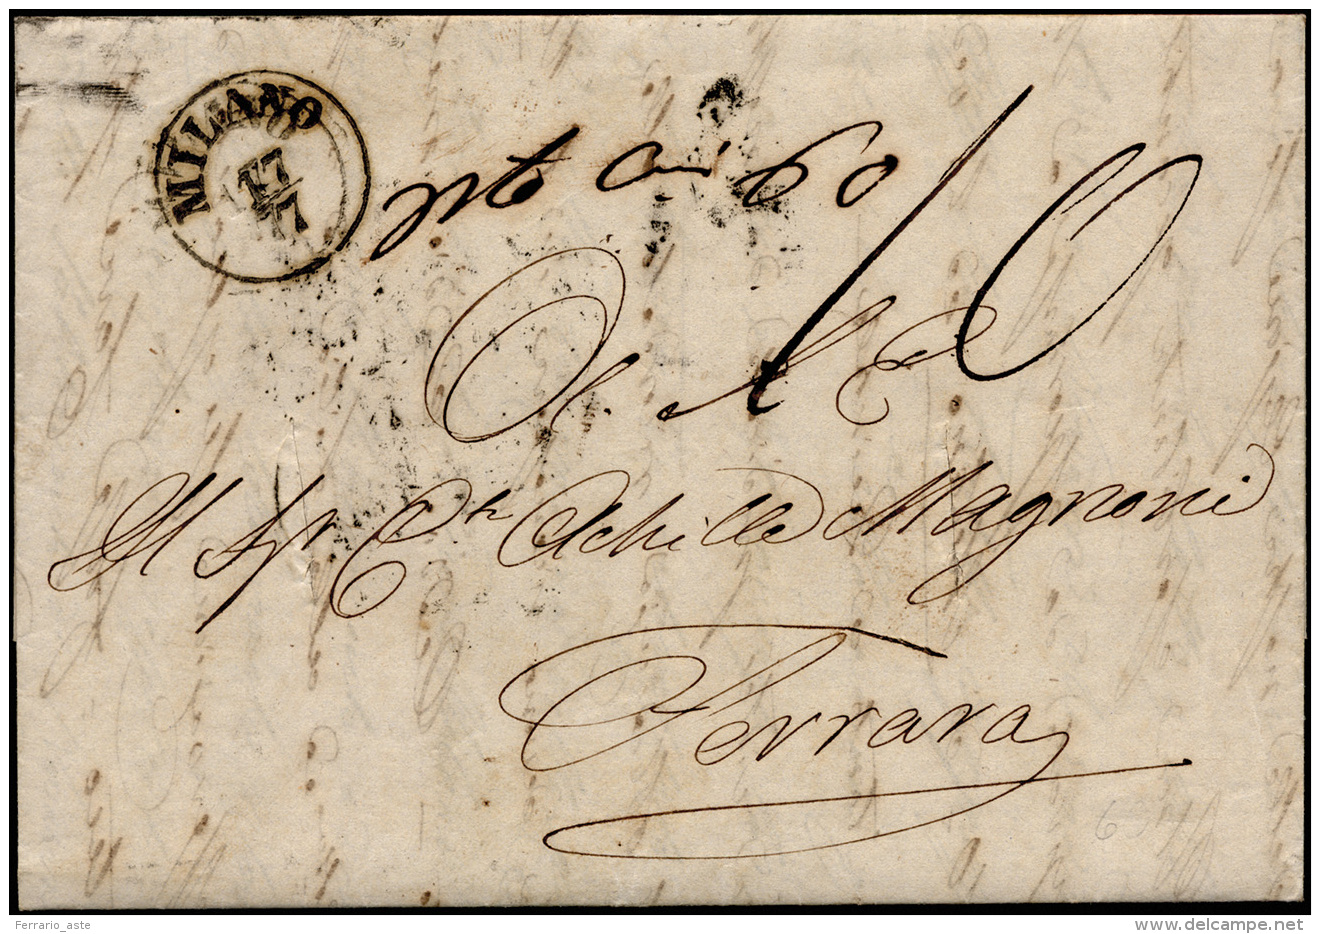 MILANO
17
77
60
10
A S E
Il Sigr Cte Achille Magnoni
Ferrara
6
Ferrario_aste
delcampe.net